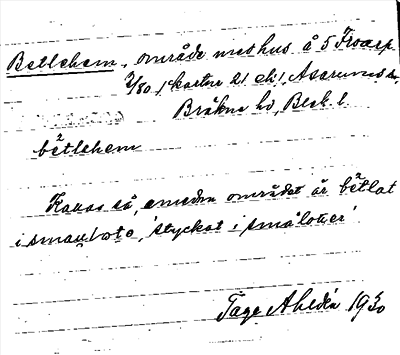 Betlehem, område med hus å 5 Froarp
2/80 (kartm 21 ek), Asarums sn,
Bräkne hd, Blek. l.
bētlehem
Kallas så, emedan området är bētlat
i små, 'styckat i smålotter'
Tage Ahldén 1930